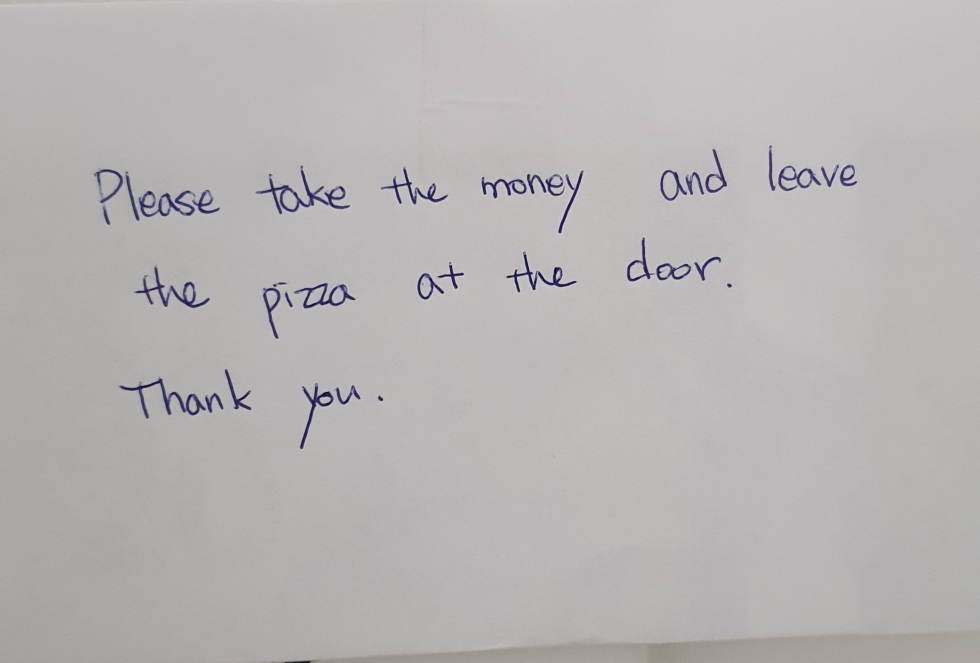 Please take the money and leave
the pizza at the door.
Thank you.